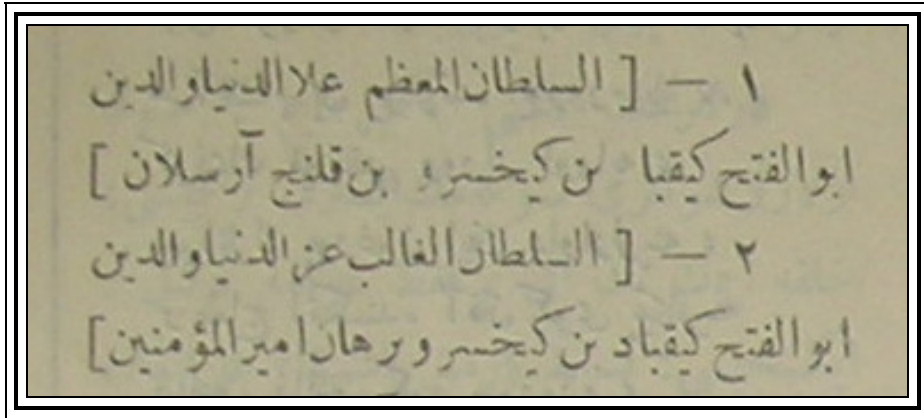 ١ — [ السلطان المعظم علا الدنيا و الدين
ابو الفتح كيقبا بن كيخسرو بن قلنج آرسلان ]
٢ — [ السلطان الغالب عز الدنيا و الدين
ابو الفتح كيقباد بن كيخسرو برهان امير المؤمنين ]